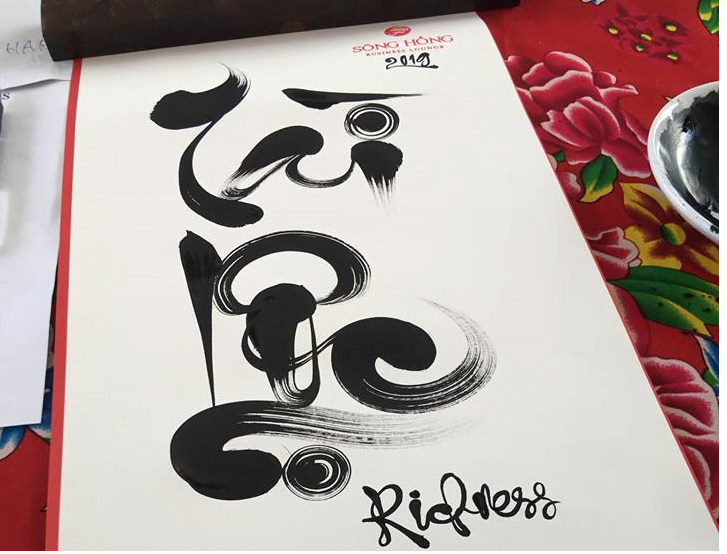 SÔNG HỒNG
BUSINESS LOUNGE
2019
Tài
Lộc
Richness